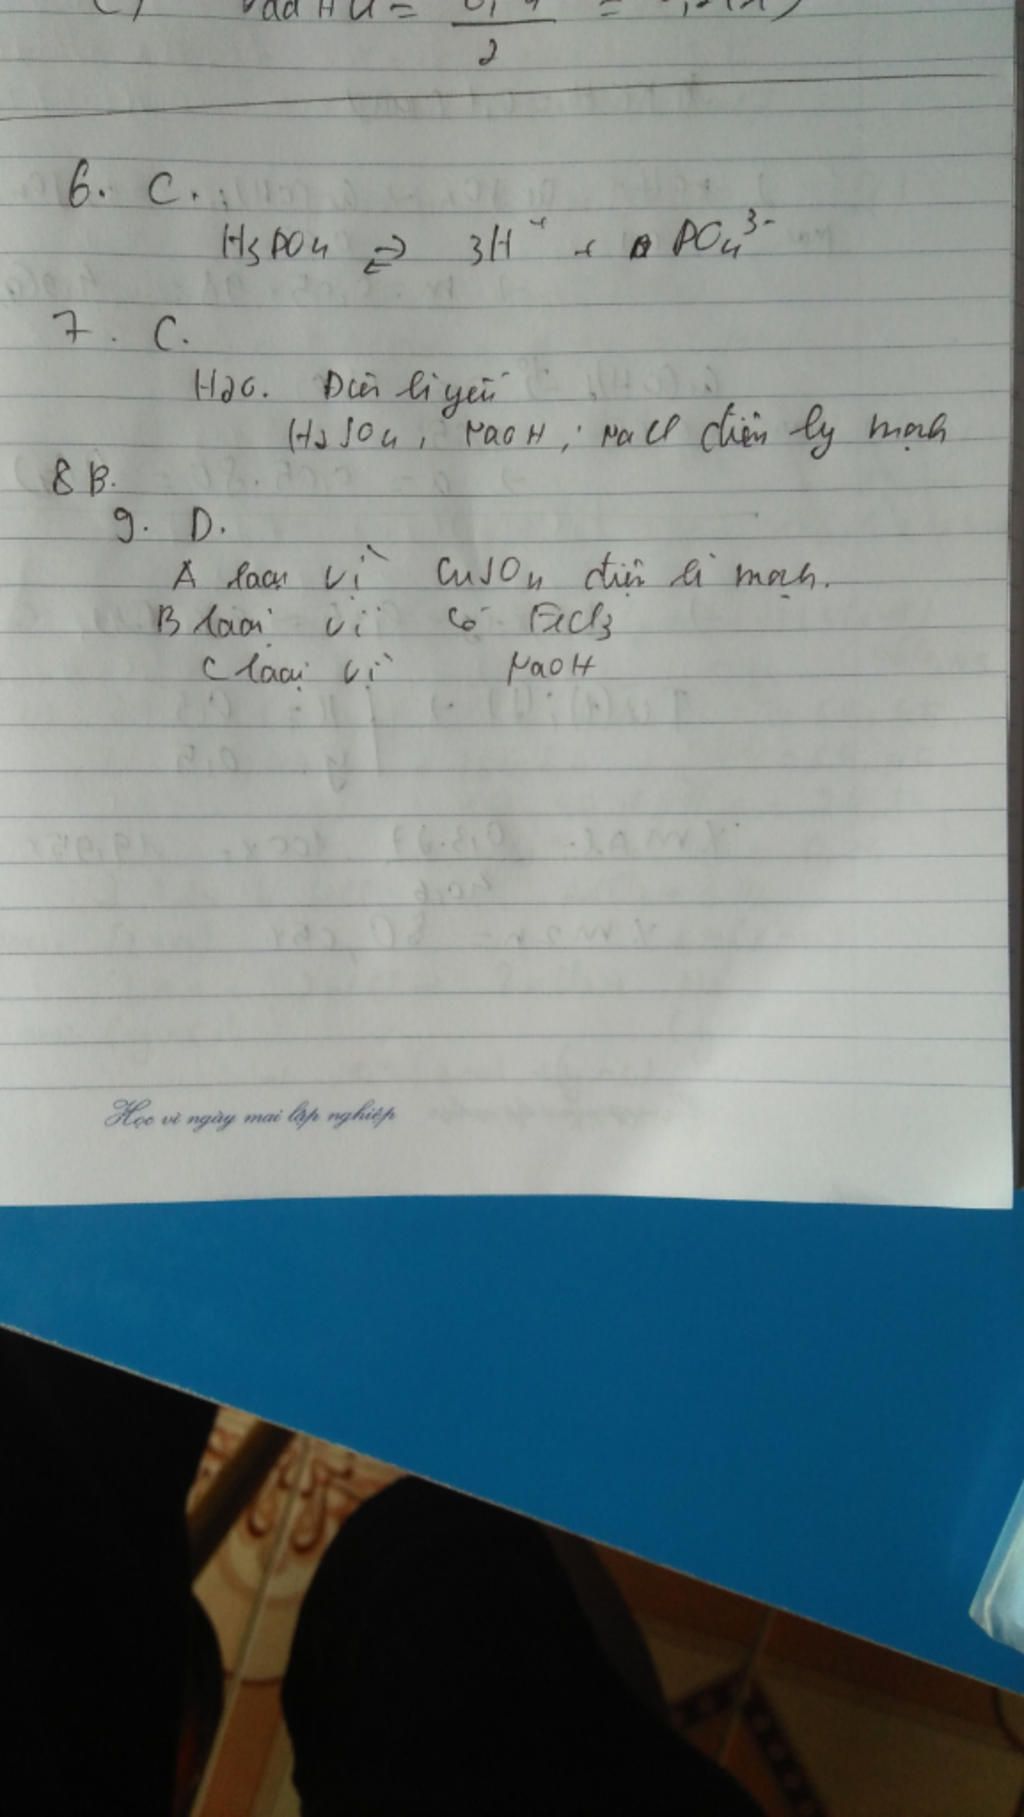 6. C.
H3PO4 ⇌ 3H+ + PO4 3-
7. C.
H2O. Điện li yếu
H2SO4, NaOH, NaCl điện ly mạnh
8 B.
9. D.
A loại vì CuSO4 điện li mạnh.
B loại vì có FeCl3
C loại vì NaOH
Học vì ngày mai lập nghiệp